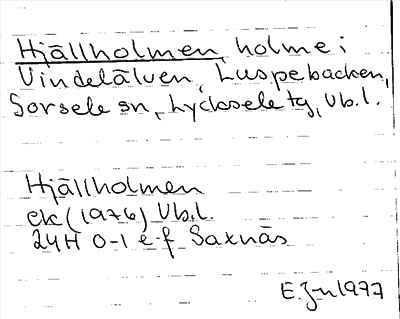 Hjällholmen, holme i
Vindelälven, Luspebacken,
Sorsele sn, Lycksele tg, Vb.l.
Hjällholmen
ek (1976) Vb.l.
24H 0-1 e-f Saxnäs
E. Jn 1977